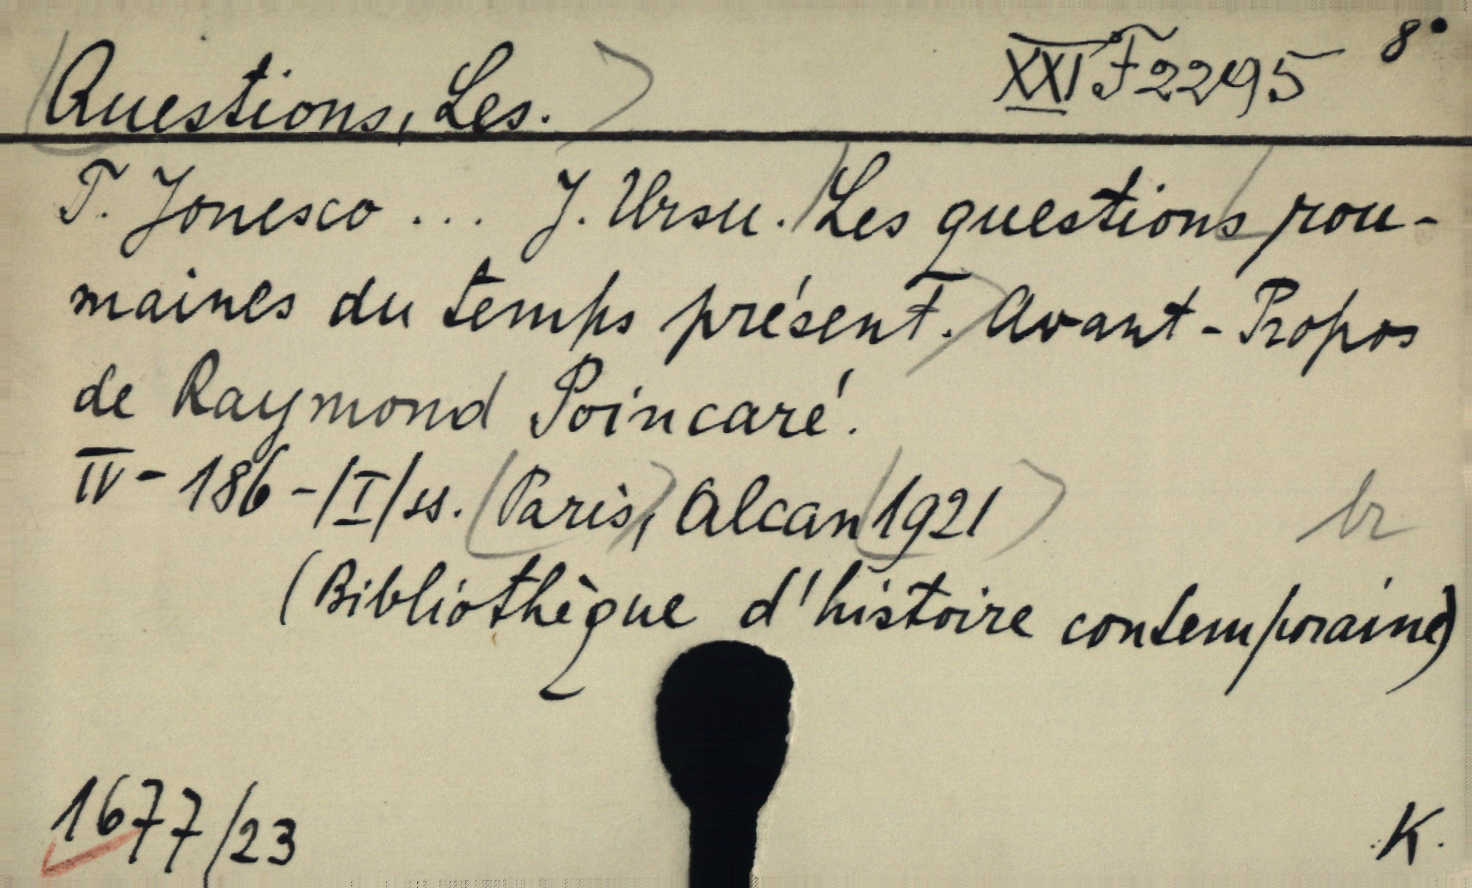 Questions, Les. XXI F 2295 8°
T. Jonesco ... J. Ursu. Les questions rou-
maines du temps présent. Avant-Propos
de Raymond Poincaré.
IV - 186 - /I/ ss. Paris, Alcan 1921 br
(Bibliothèque d'histoire contemporaine)
1677/23 K.